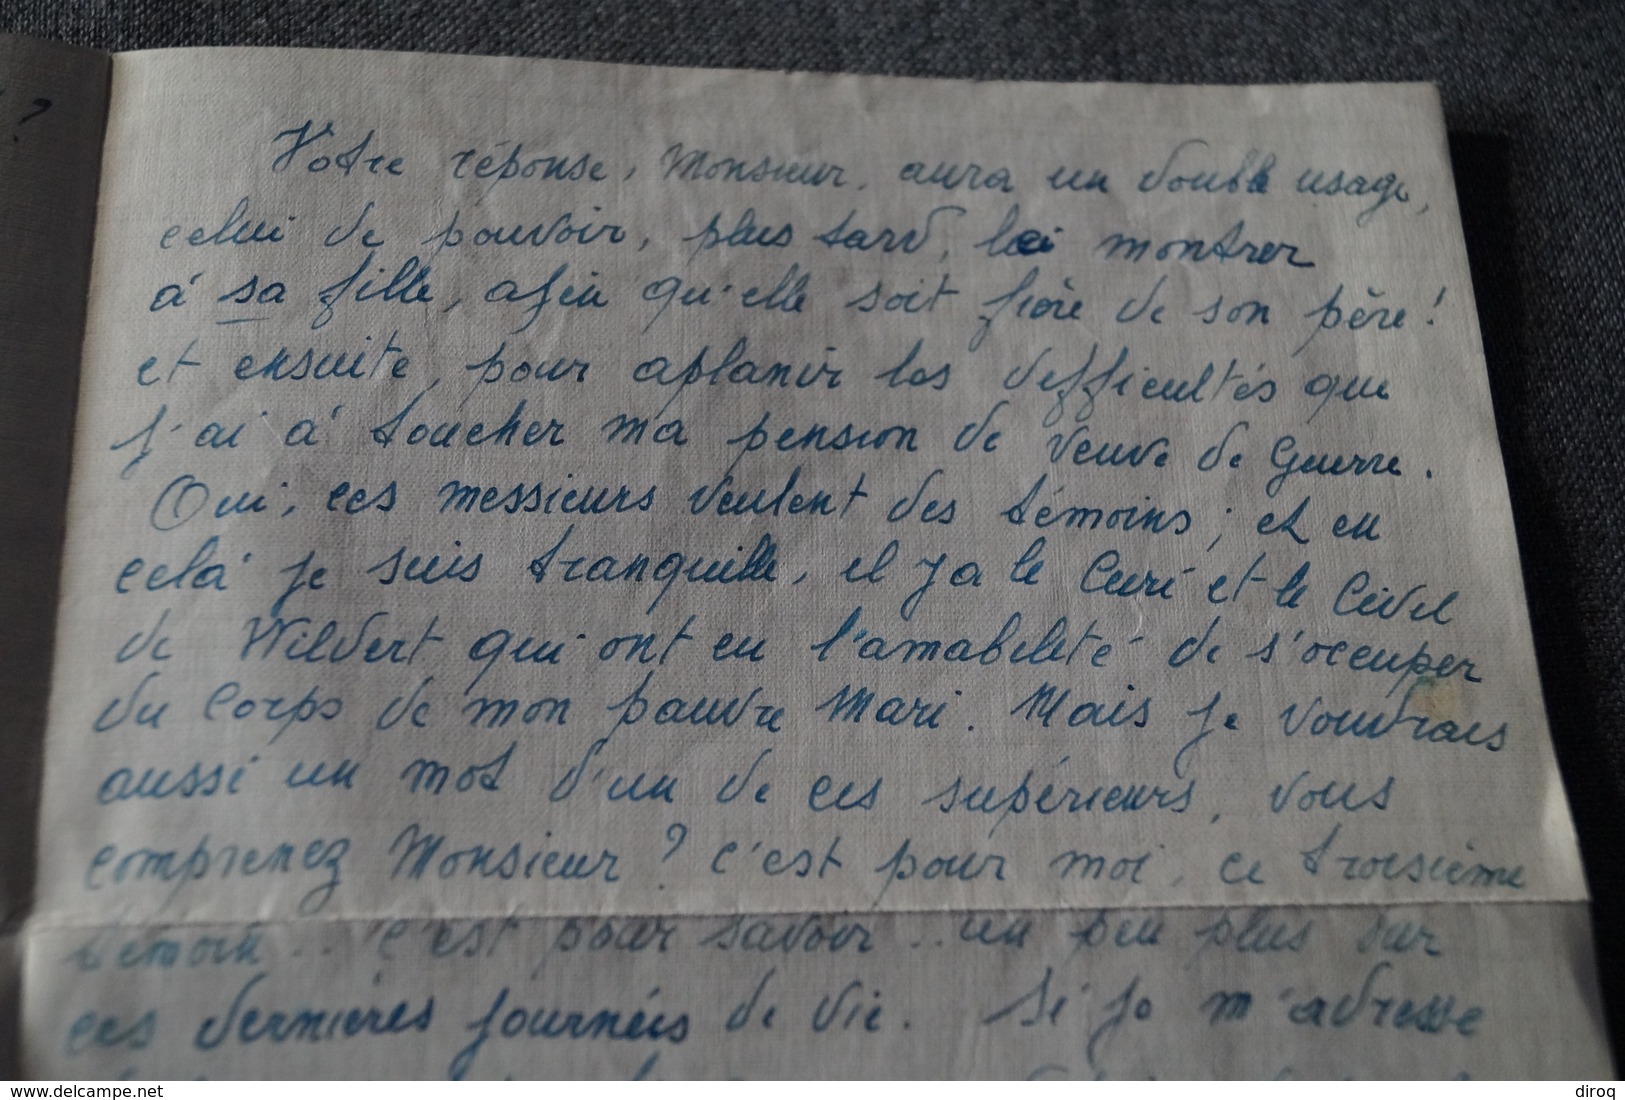 ?
Votre réponse, Monsieur, aura un double usage,
celui de pouvoir, plus tard, la montrer
à sa fille, afin qu'elle soit fière de son père!
et ensuite, pour aplanir les difficultés que
j'ai à toucher ma pension de veuve de Guerre.
Oui, ces messieurs veulent des témoins; et en
celà je suis tranquille, il y a le Curé et le Civil
de Wilvert qui ont eu l'amabilité de s'occuper
du Corps de mon pauvre Mari. Mais je voudrais
aussi un mot d'un de ces supérieurs, vous
comprenez Monsieur? c'est pour moi, ce troisième
témoin.. c'est pour savoir.. un peu plus sur
ces dernières journées de vie. Si je m'adresse
diroq